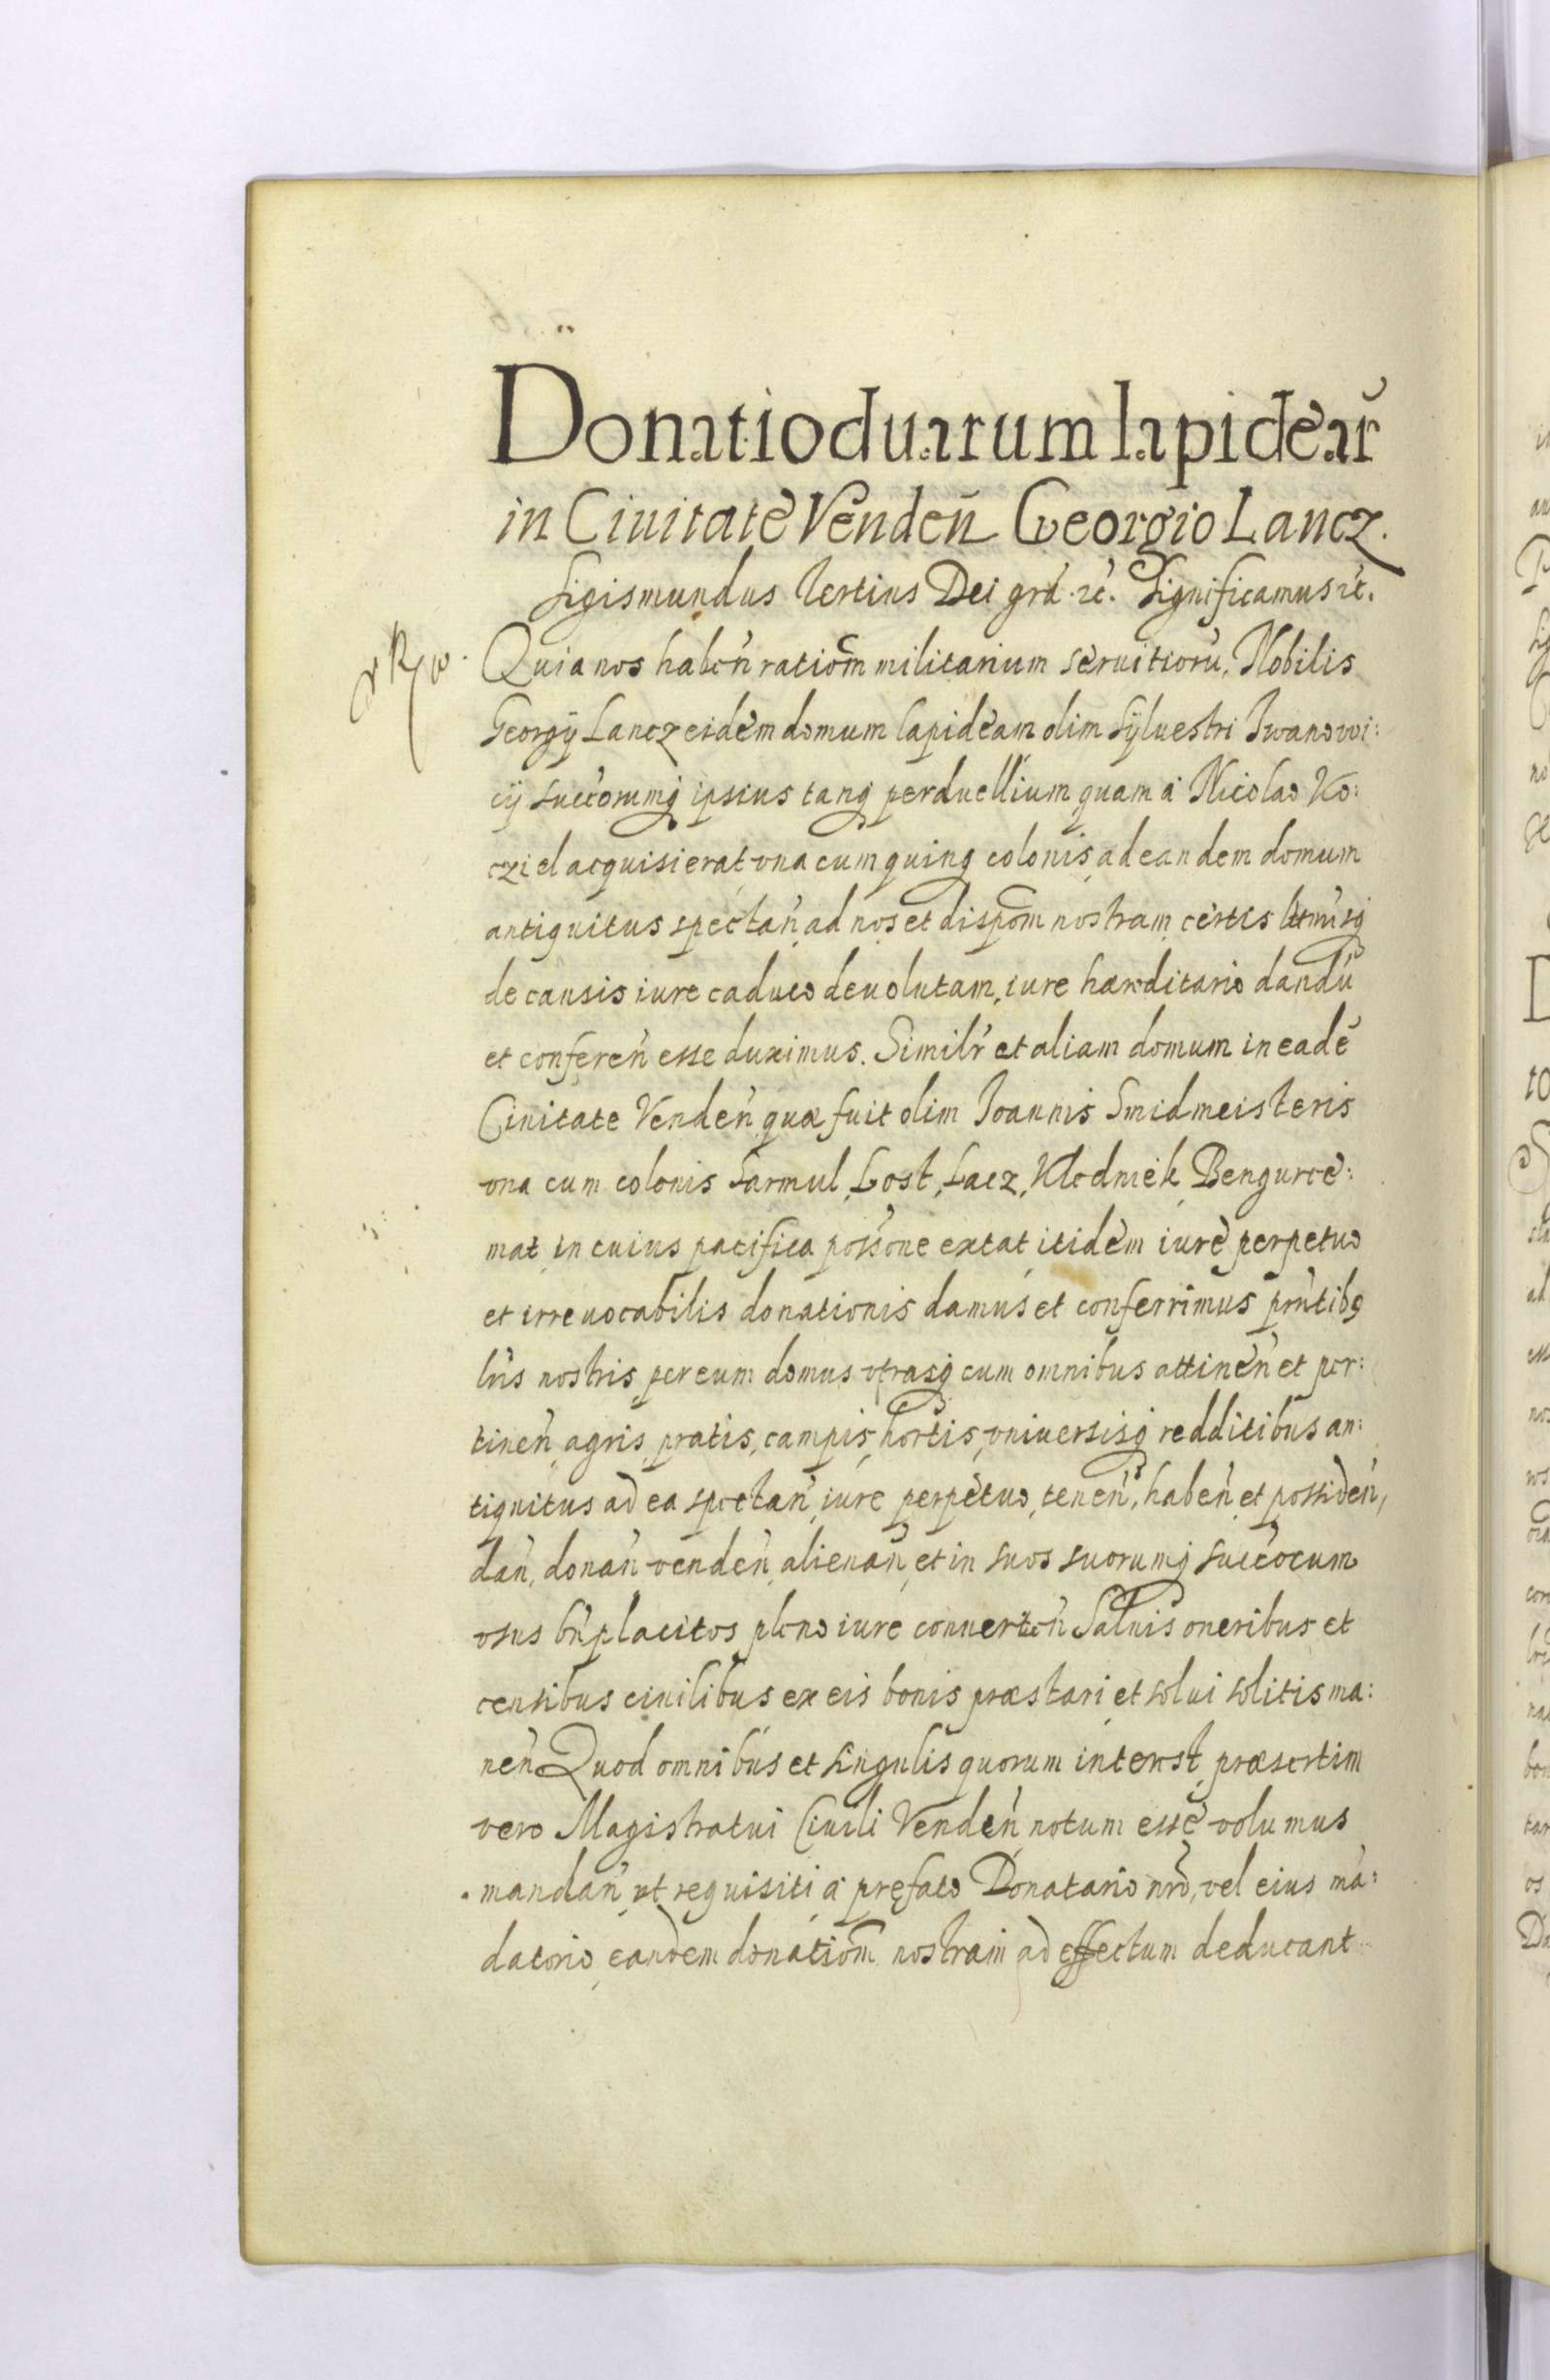 Donatio duarum lapidear̃
in Ciuitate Venden̄ Georgio Lancz.
Sigismundus Tertius Dei grã. ꝛc̃. Significamus ꝛc̃.
Quia nos habeñ ratiom̃ militarium seruitiorũ, Nobilis
Georgÿ Lancz eidem domum lapideam olim Sÿluestri Iwanowi:
cÿ succorumq ipsius tanq perduellium quam à Nicolao Ko:
cziel acquisierat vna cum quinq colonis, ad eandem domum
antiquitus spectañ, ad nos et dispom̃ nostram certis ltmisq
de causis iure caduco deuolutam, iure hæreditario dandũ
et confereñ esse duximus. Similr̃ et aliam domum in eadẽ
Ciuitate Vendeñ quæ fuit olim Ioannis Smidmeisteris
vna cum colonis Sarmul, Lost, Lacz, Klodniek, Bengurce:
mat, in cuius pacifica possõne extat itidem iure perpetuo
et irreuocabilis donationis damus et conferrimus pñtibꝯ
lr̃is nostris per eum domus vtrasq cum omnibus attineñ et per:
tineñ, agris, pratis, campis, hortis, vniuersisq redditibus an:
tiquitus ad ea spectañ, iure perpetuo, teneñ, habeñ, et possideñ,
dañ, donañ vendeñ, alienañ, et in suos suorumq succorum
vsus bñplacitos pleno iure conuerteñ Saluis oneribus et
censibus ciuilibus ex eis bonis præstari et solui solitis ma:
neñ Quod omnibus et singulis quorum interest, præsertim
vero Magistratui Ciuili Vendeñ, notum esse volumus
mandañ, ut requisiti à pręfato Donatario nr̃o, vel eius mã:
datorio, eandem donatiom̃ nostram ad effectum deducant